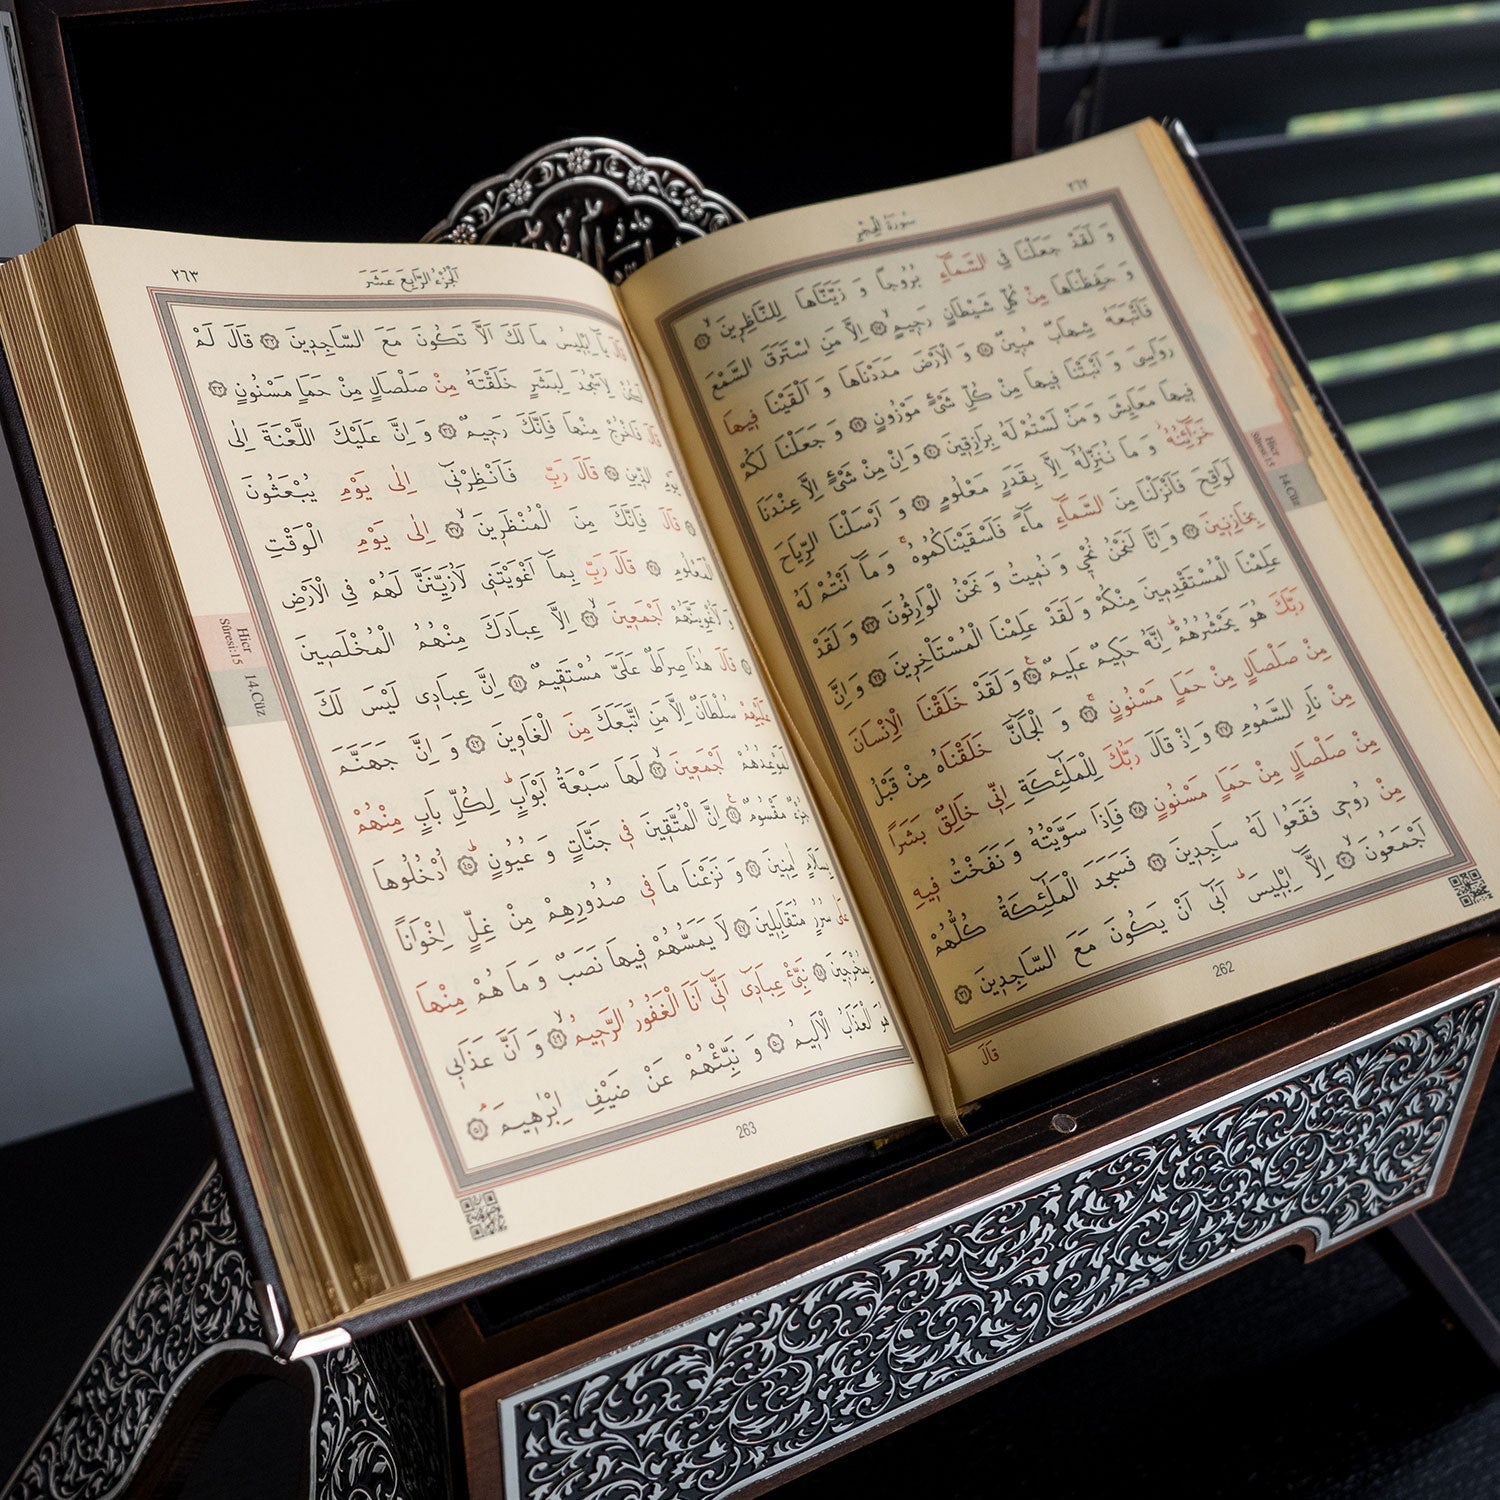 ٢٦٢
سُورَةُ الْحِجْرِ
وَ لَقَدْ جَعَلْنَا فِي السَّمَٓاءِ بُرُوجاً وَ زَيَّنَّاهَا لِلنَّاظِر۪ينَۙ ﴿١٦﴾
وَ حَفِظْنَاهَا مِنْ كُلِّ شَيْطَانٍ رَج۪يمٍۙ ﴿١٧﴾ اِلَّا مَنِ اسْتَرَقَ السَّمْعَ
فَاَتْبَعَهُ شِهَابٌ مُب۪ينٌ ﴿١٨﴾ وَ الْاَرْضَ مَدَدْنَاهَا وَ اَلْقَيْنَا ف۪يهَا
رَوَاسِيَ وَ اَنْبَتْنَا ف۪يهَا مِنْ كُلِّ شَيْءٍ مَوْزُونٍ ﴿١٩﴾ وَ جَعَلْنَا لَكُمْ
ف۪يهَا مَعَايِشَ وَ مَنْ لَسْتُمْ لَهُ بِرَازِق۪ينَ ﴿٢٠﴾ وَ اِنْ مِنْ شَيْءٍ اِلَّا عِنْدَنَا
خَزَٓائِنُهُۘ وَ مَا نُنَزِّلُهُٓ اِلَّا بِقَدَرٍ مَعْلُومٍ ﴿٢١﴾ وَ اَرْسَلْنَا الرِّيَاحَ
لَوَاقِحَ فَاَنْزَلْنَا مِنَ السَّمَٓاءِ مَٓاءً فَاَسْقَيْنَاكُمُوهُۚ وَ مَٓا اَنْتُمْ لَهُ
بِخَازِن۪ينَ ﴿٢٢﴾ وَ اِنَّا لَنَحْنُ نُحْي۪ وَ نُم۪يتُ وَ نَحْنُ الْوَارِثُونَ ﴿٢٣﴾ وَ لَقَدْ
عَلِمْنَا الْمُسْتَقْدِم۪ينَ مِنْكُمْ وَ لَقَدْ عَلِمْنَا الْمُسْتَأْخِر۪ينَ ﴿٢٤﴾ وَ اِنَّ
رَبَّكَ هُوَ يَحْشُرُهُمْۜ اِنَّهُ حَك۪يمٌ عَل۪يمٌ۟ ﴿٢٥﴾ وَ لَقَدْ خَلَقْنَا الْاِنْسَانَ
مِنْ صَلْصَالٍ مِنْ حَمَأٍ مَسْنُونٍۚ ﴿٢٦﴾ وَ الْجَٓانَّ خَلَقْنَاهُ مِنْ قَبْلُ
مِنْ نَارِ السَّمُومِ ﴿٢٧﴾ وَ اِذْ قَالَ رَبُّكَ لِلْمَلٰٓئِكَةِ اِنّ۪ي خَالِقٌ بَشَراً
مِنْ صَلْصَالٍ مِنْ حَمَأٍ مَسْنُونٍ ﴿٢٨﴾ فَاِذَا سَوَّيْتُهُ وَ نَفَخْتُ ف۪يهِ
مِنْ رُوح۪ي فَقَعُوا لَهُ سَاجِد۪ينَ ﴿٢٩﴾ فَسَجَدَ الْمَلٰٓئِكَةُ كُلُّهُمْ
اَجْمَعُونَۙ ﴿٣٠﴾ اِلَّٓا اِبْل۪يسَۜ اَبٰٓى اَنْ يَكُونَ مَعَ السَّاجِد۪ينَ ﴿٣١﴾
قَالَ
262
Hicr
Sûresi:15
14.Cüz
اَلْجُزْءُ الرَّابِعَ عَشَرَ
٢٦٣
قَالَ يَٓا اِبْل۪يسُ مَا لَكَ اَلَّا تَكُونَ مَعَ السَّاجِد۪ينَ ﴿٣٢﴾ قَالَ لَمْ
اَكُنْ لِاَسْجُدَ لِبَشَرٍ خَلَقْتَهُ مِنْ صَلْصَالٍ مِنْ حَمَأٍ مَسْنُونٍ ﴿٣٣﴾
قَالَ فَاخْرُجْ مِنْهَا فَاِنَّكَ رَج۪يمٌۙ ﴿٣٤﴾ وَ اِنَّ عَلَيْكَ اللَّعْنَةَ اِلٰى
يَوْمِ الدّ۪ينِ ﴿٣٥﴾ قَالَ رَبِّ فَاَنْظِرْن۪ٓي اِلٰى يَوْمِ يُبْعَثُونَ
﴿٣٦﴾ قَالَ فَاِنَّكَ مِنَ الْمُنْظَر۪ينَۙ ﴿٣٧﴾ اِلٰى يَوْمِ الْوَقْتِ
الْمَعْلُومِ ﴿٣٨﴾ قَالَ رَبِّ بِمَٓا اَغْوَيْتَن۪ي لَاُزَيِّنَنَّ لَهُمْ فِي الْاَرْضِ
وَ لَاُغْوِيَنَّهُمْ اَجْمَع۪ينَۙ ﴿٣٩﴾ اِلَّا عِبَادَكَ مِنْهُمُ الْمُخْلَص۪ينَ
﴿٤٠﴾ قَالَ هٰذَا صِرَاطٌ عَلَيَّ مُسْتَق۪يمٌ ﴿٤١﴾ اِنَّ عِبَاد۪ي لَيْسَ لَكَ
عَلَيْهِمْ سُلْطَانٌ اِلَّا مَنِ اتَّبَعَكَ مِنَ الْغَاو۪ينَ ﴿٤٢﴾ وَ اِنَّ جَهَنَّمَ
لَمَوْعِدُهُمْ اَجْمَع۪ينَۙ ﴿٤٣﴾ لَهَا سَبْعَةُ اَبْوَابٍۜ لِكُلِّ بَابٍ مِنْهُمْ
جُزْءٌ مَقْسُومٌ۟ ﴿٤٤﴾ اِنَّ الْمُتَّق۪ينَ ف۪ي جَنَّاتٍ وَ عُيُونٍۜ ﴿٤٥﴾ اُدْخُلُوهَا
بِسَلَامٍ اٰمِن۪ينَ ﴿٤٦﴾ وَ نَزَعْنَا مَا ف۪ي صُدُورِهِمْ مِنْ غِلٍّ اِخْوَاناً
عَلٰى سُرُرٍ مُتَقَابِل۪ينَ ﴿٤٧﴾ لَا يَمَسُّهُمْ ف۪يهَا نَصَبٌ وَ مَا هُمْ مِنْهَا
بِمُخْرَج۪ينَ ﴿٤٨﴾ نَبِّئْ عِبَاد۪ٓي اَنّ۪ٓي اَنَا الْغَفُورُ الرَّح۪يمُۙ ﴿٤٩﴾ وَ اَنَّ عَذَاب۪ي
هُوَ الْعَذَابُ الْاَل۪يمُ ﴿٥٠﴾ وَ نَبِّئْهُمْ عَنْ ضَيْفِ اِبْرٰه۪يمَۘ ﴿٥١﴾
263
Hicr
Sûresi:15
14.Cüz